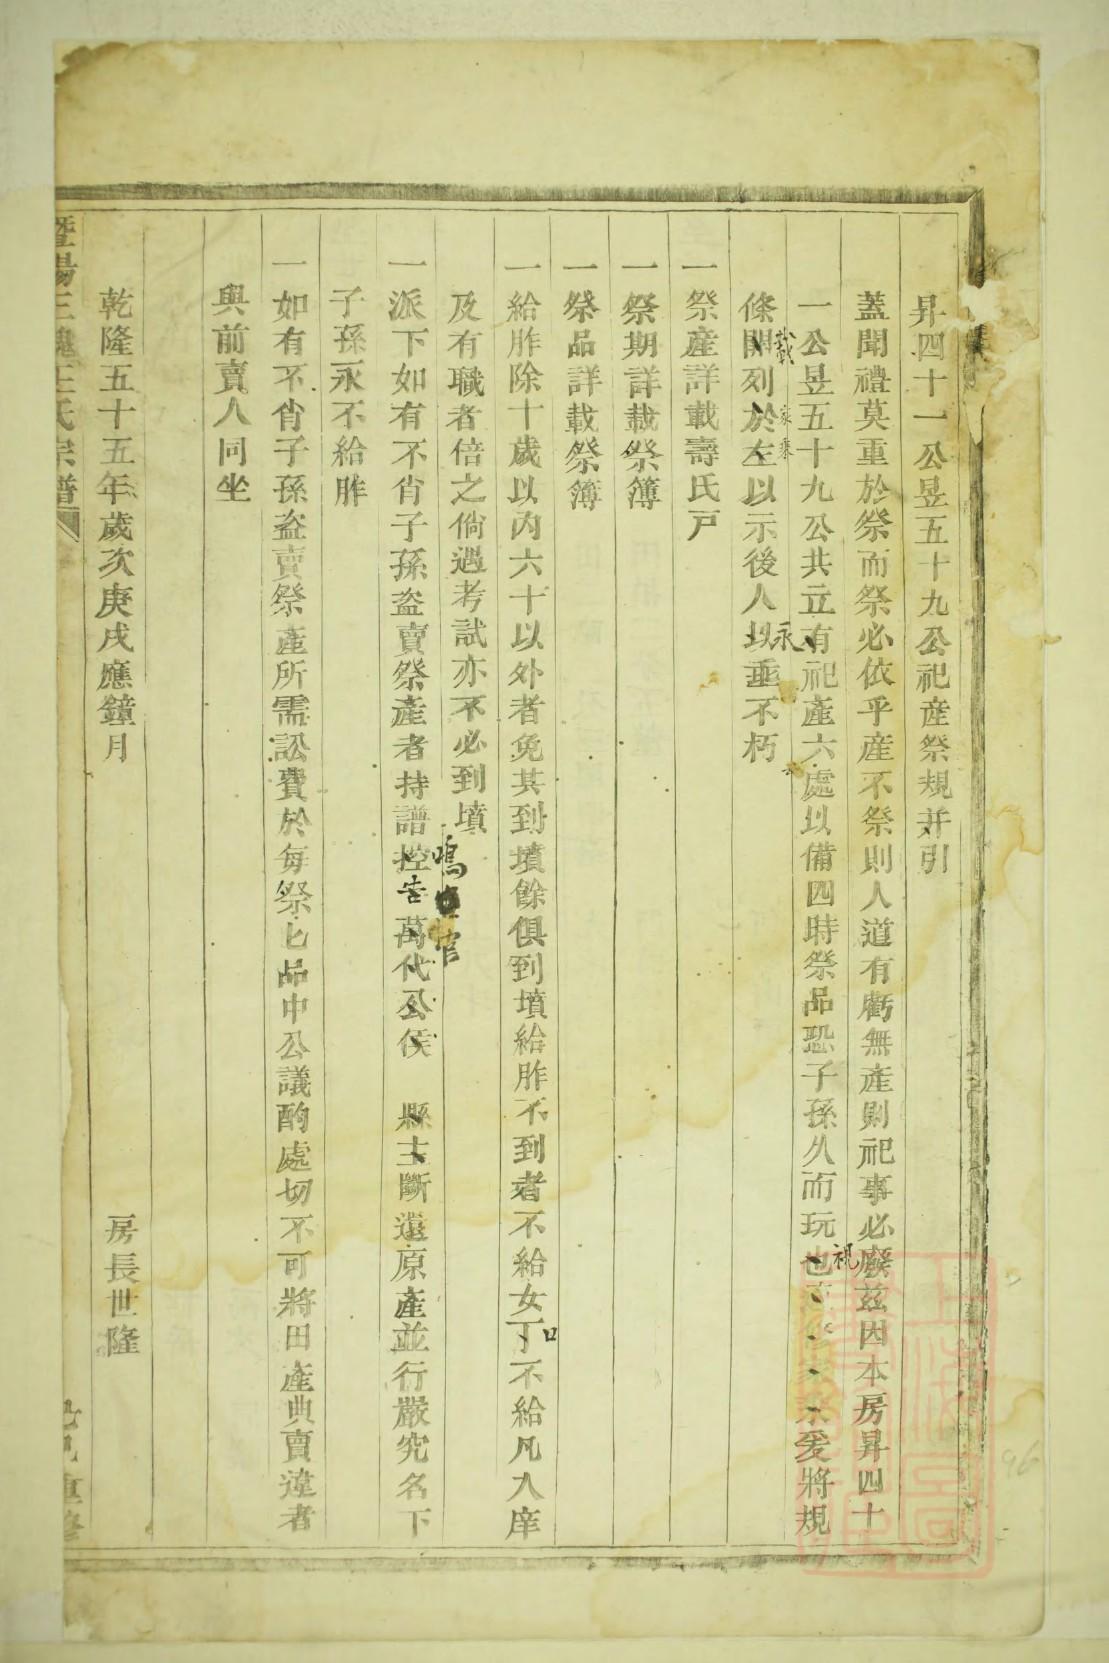 昇四十一公昱五十九公祀產祭規并引
蓋聞禮莫重於祭而祭必依乎產不祭則人道有虧無產則祀事必廢茲因本房昇四十
一公昱五十九公共立有祀產六處以備四時祭品恐子孫久而玩也爰將規
永
視
條開列於左以示後人以垂不朽
載
家乘
一祭產詳載壽氏戸
一祭期詳載祭簿
一祭品詳載祭簿
一給胙除十歲以內六十以外者免其到墳餘俱到墳給胙不到者不給女丁不給凡入庠
口
及有職者倍之倘遇考試亦不必到墳
一派下如有不肖子孫盜賣祭產者持譜控告萬代公侯 縣主斷還原產並行嚴究名下
鳴
官
子孫永不給胙
一如有不肖子孫盜賣祭產所需訟費於每祭品中公議酌處切不可將田產典賣違者
與前賣人同坐
乾隆五十五年歲次庚戌應鐘月 房長世隆
暨陽王氏宗譜
重修